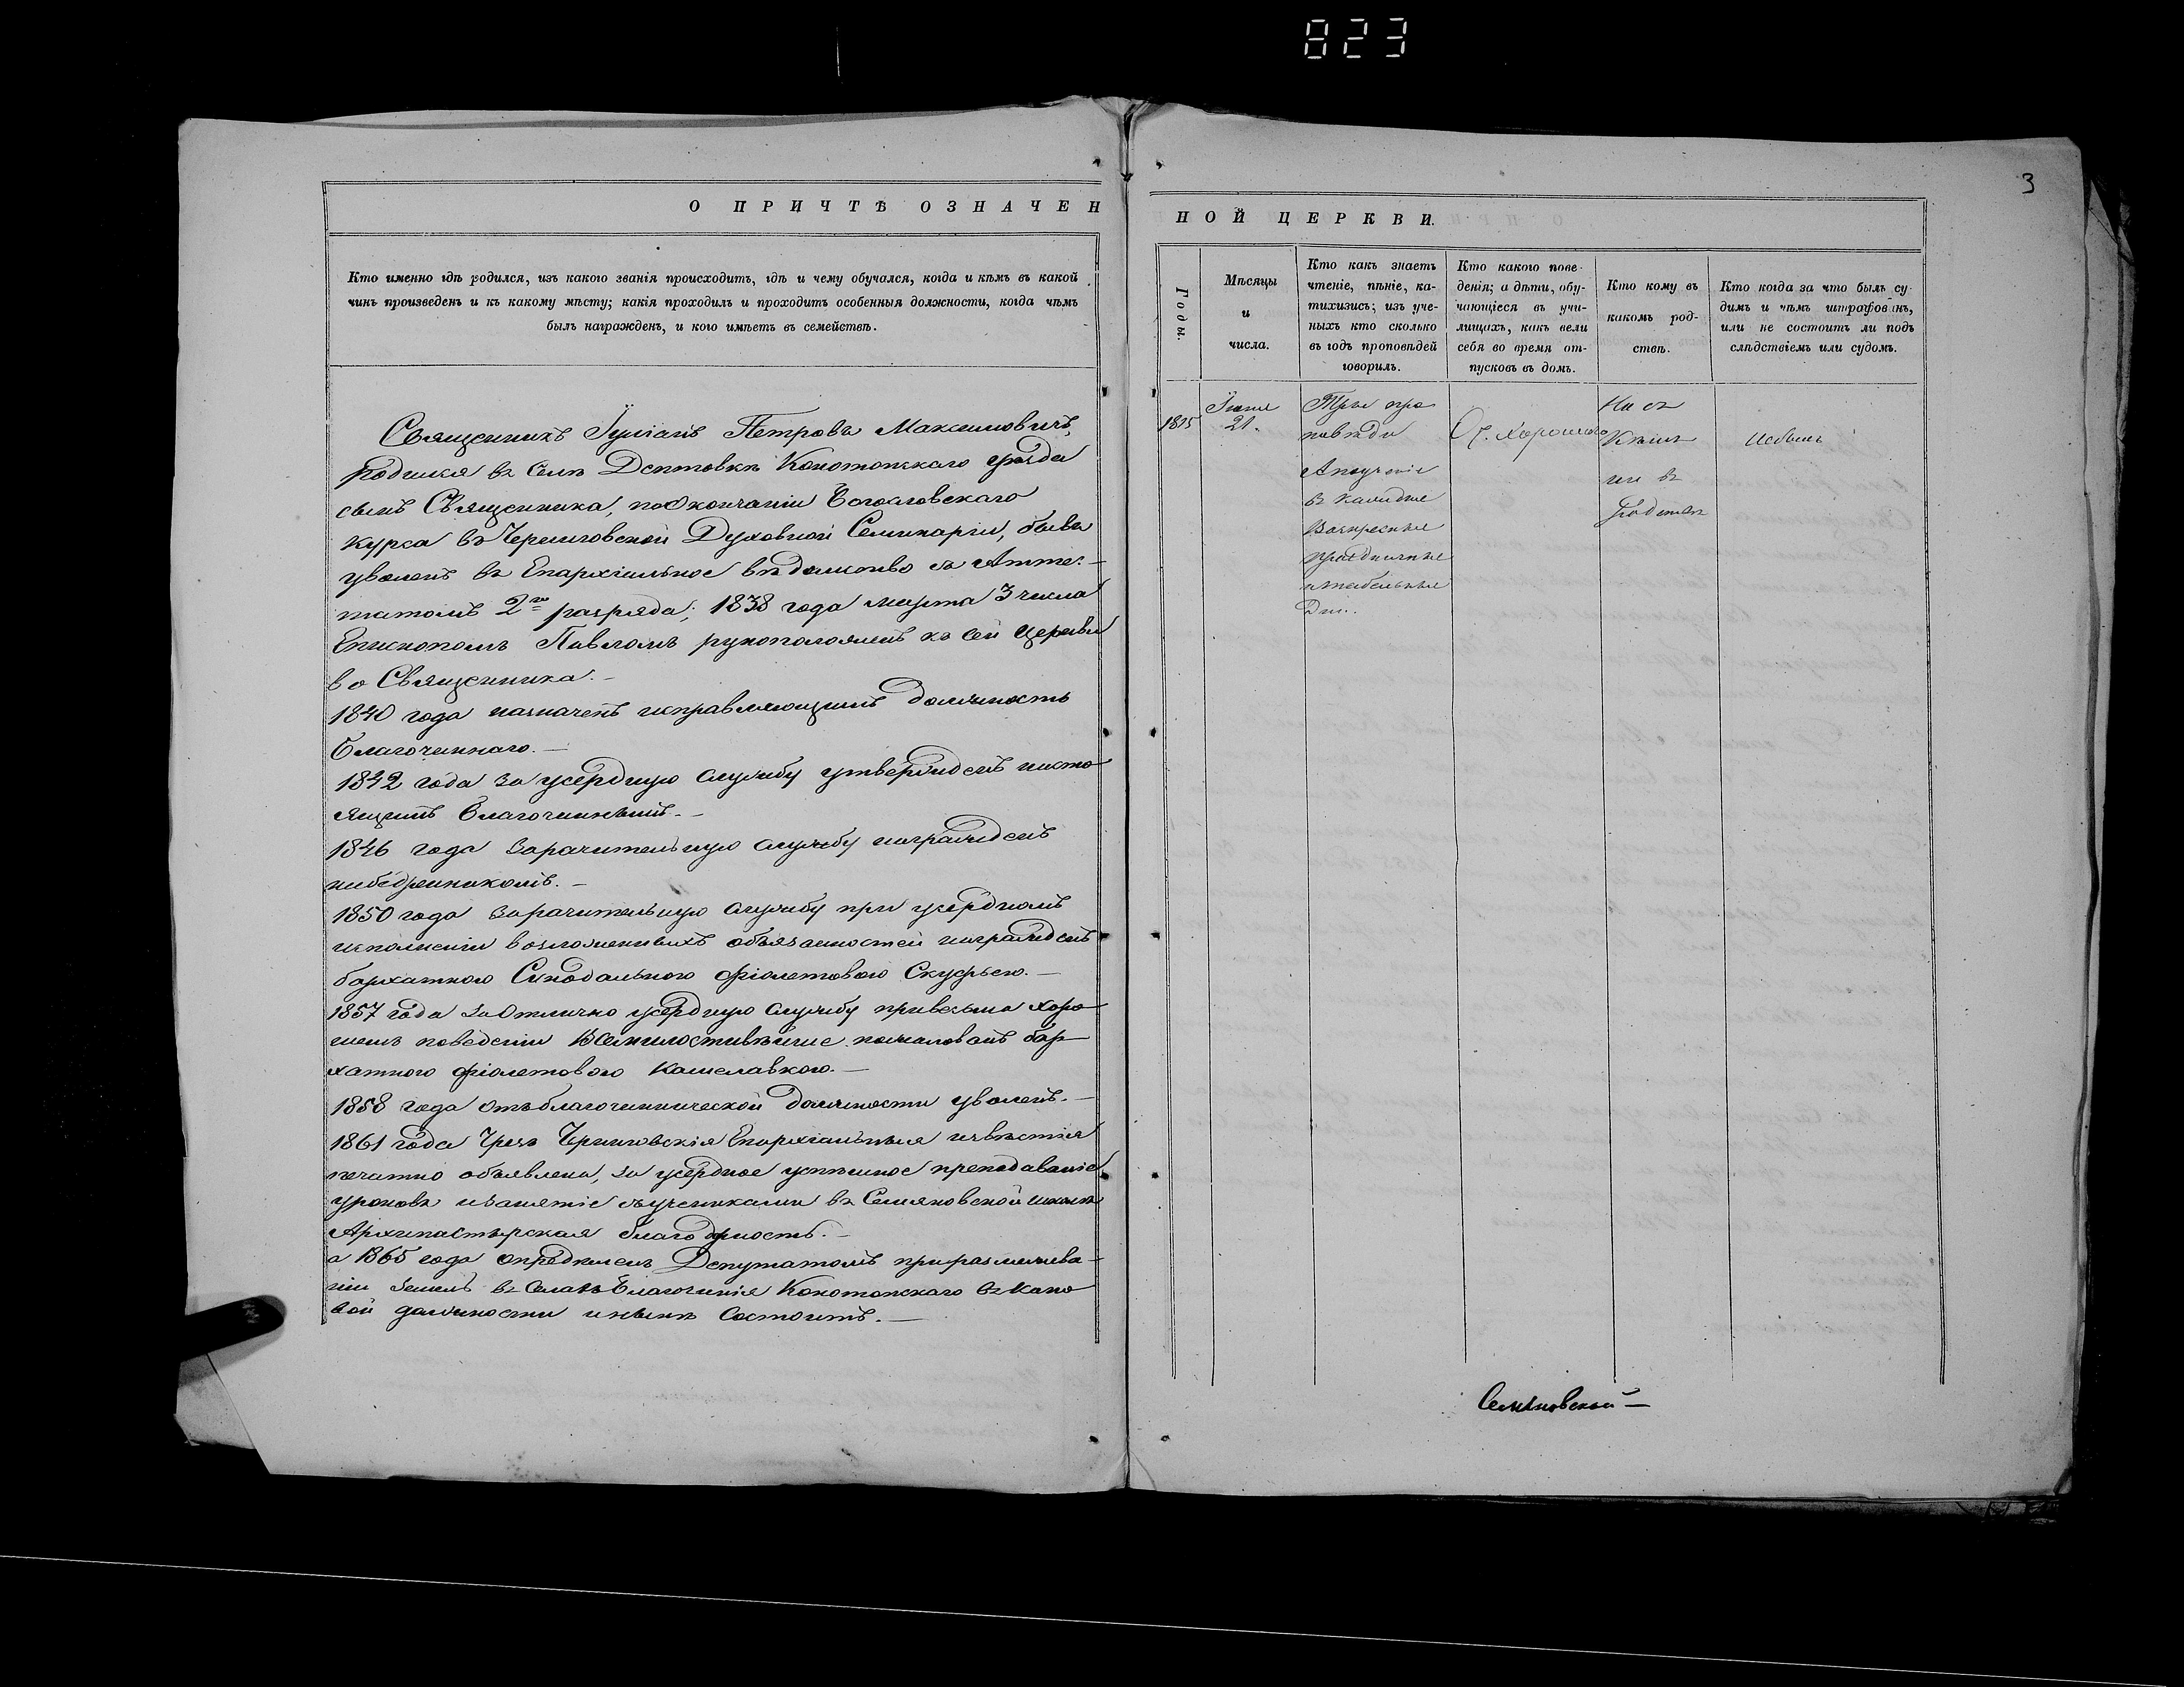 823
3
О ПРИЧТѢ ОЗНАЧЕН
НОЙ ЦЕРКВИ.
Кто именно гдѣ родился, изъ какого званія происходитъ, гдѣ и чему обучался, когда и кѣмъ въ какой
чинъ произведенъ и къ какому мѣсту; какія проходилъ и проходитъ особенныя должности, когда чѣмъ
былъ награжденъ, и кого имѣетъ въ семействѣ.
Священникъ Іуліанъ Петровъ Максимовичъ,
родился въ Селѣ Дептовкѣ Конотопскаго уѣзда
сынъ Священника, по Окончаніи Богословскаго
курса въ Черниговской Духовной Семинаріи, бывъ
уволенъ въ Епархіальное вѣдомство съ Атте-
татомъ 2го разряда; 1838 года марта 3 числа
Епископомъ Павломъ рукоположенъ къ сей Церкви
во Священника.-
1840 года назначенъ исправляющимъ должность
Благочиннаго.—
1842 года за усердную службу утвержденъ насто
ящимъ Благочиннымъ.-
1846 года зарачительную службу награжденъ
набедренникомъ.-
1850 года зарачительную службу при усердномъ
исполненіи возложенныхъ обязанностей награжденъ
бархатною Синодальною фіолетовою Скуфьею.—
1857 года за Отлично усердную службу привесьма хоро
шемъ поведеніи Всемилостивѣйше пожалованъ бар
хатною фіолетовою Камилавкою.—
1858 года отъ благочиннической должности уволенъ.—
1861 года Чрезъ Черниговскія Епархіальныя извѣстія
печатно объявлена, за усердное успѣшное преподаваніе
уроковъ и занятіе съ учениками въ Семяновской школѣ
Архипастырская благодрность.-
а 1865 года опредѣленъ Депутатомъ при размежева-
ніи Земель въ Селахъ Благочинія Конотопскаго въ како
вой должности и нынѣ Состоитъ.—
Годы.
Мѣсяцы
и
числа.
Кто какъ знаетъ
чтеніе, пѣніе, ка-
тихизисъ; изъ уче-
ныхъ кто сколько
въ годъ проповѣдей
говорилъ.
Кто какого пове-
денія; а дѣти, обу-
чающіеся въ учи-
лищахъ, какъ вели
себя во время от-
пусковъ въ домъ.
Кто кому въ
какомъ род-
ствѣ.
Кто когда за что былъ су-
димъ и чѣмъ штрафованъ,
или не состоитъ ли подъ
слѣдствіемъ или судомъ.
1815
21.
Три про
повѣди
Апоученіе
въ каждые
Воскресные
праздничные
и табельные
Дни.
Оч. хорошаго
Ни съ
Кѣмъ
не въ
родствѣ
Небылъ
Семяновской—